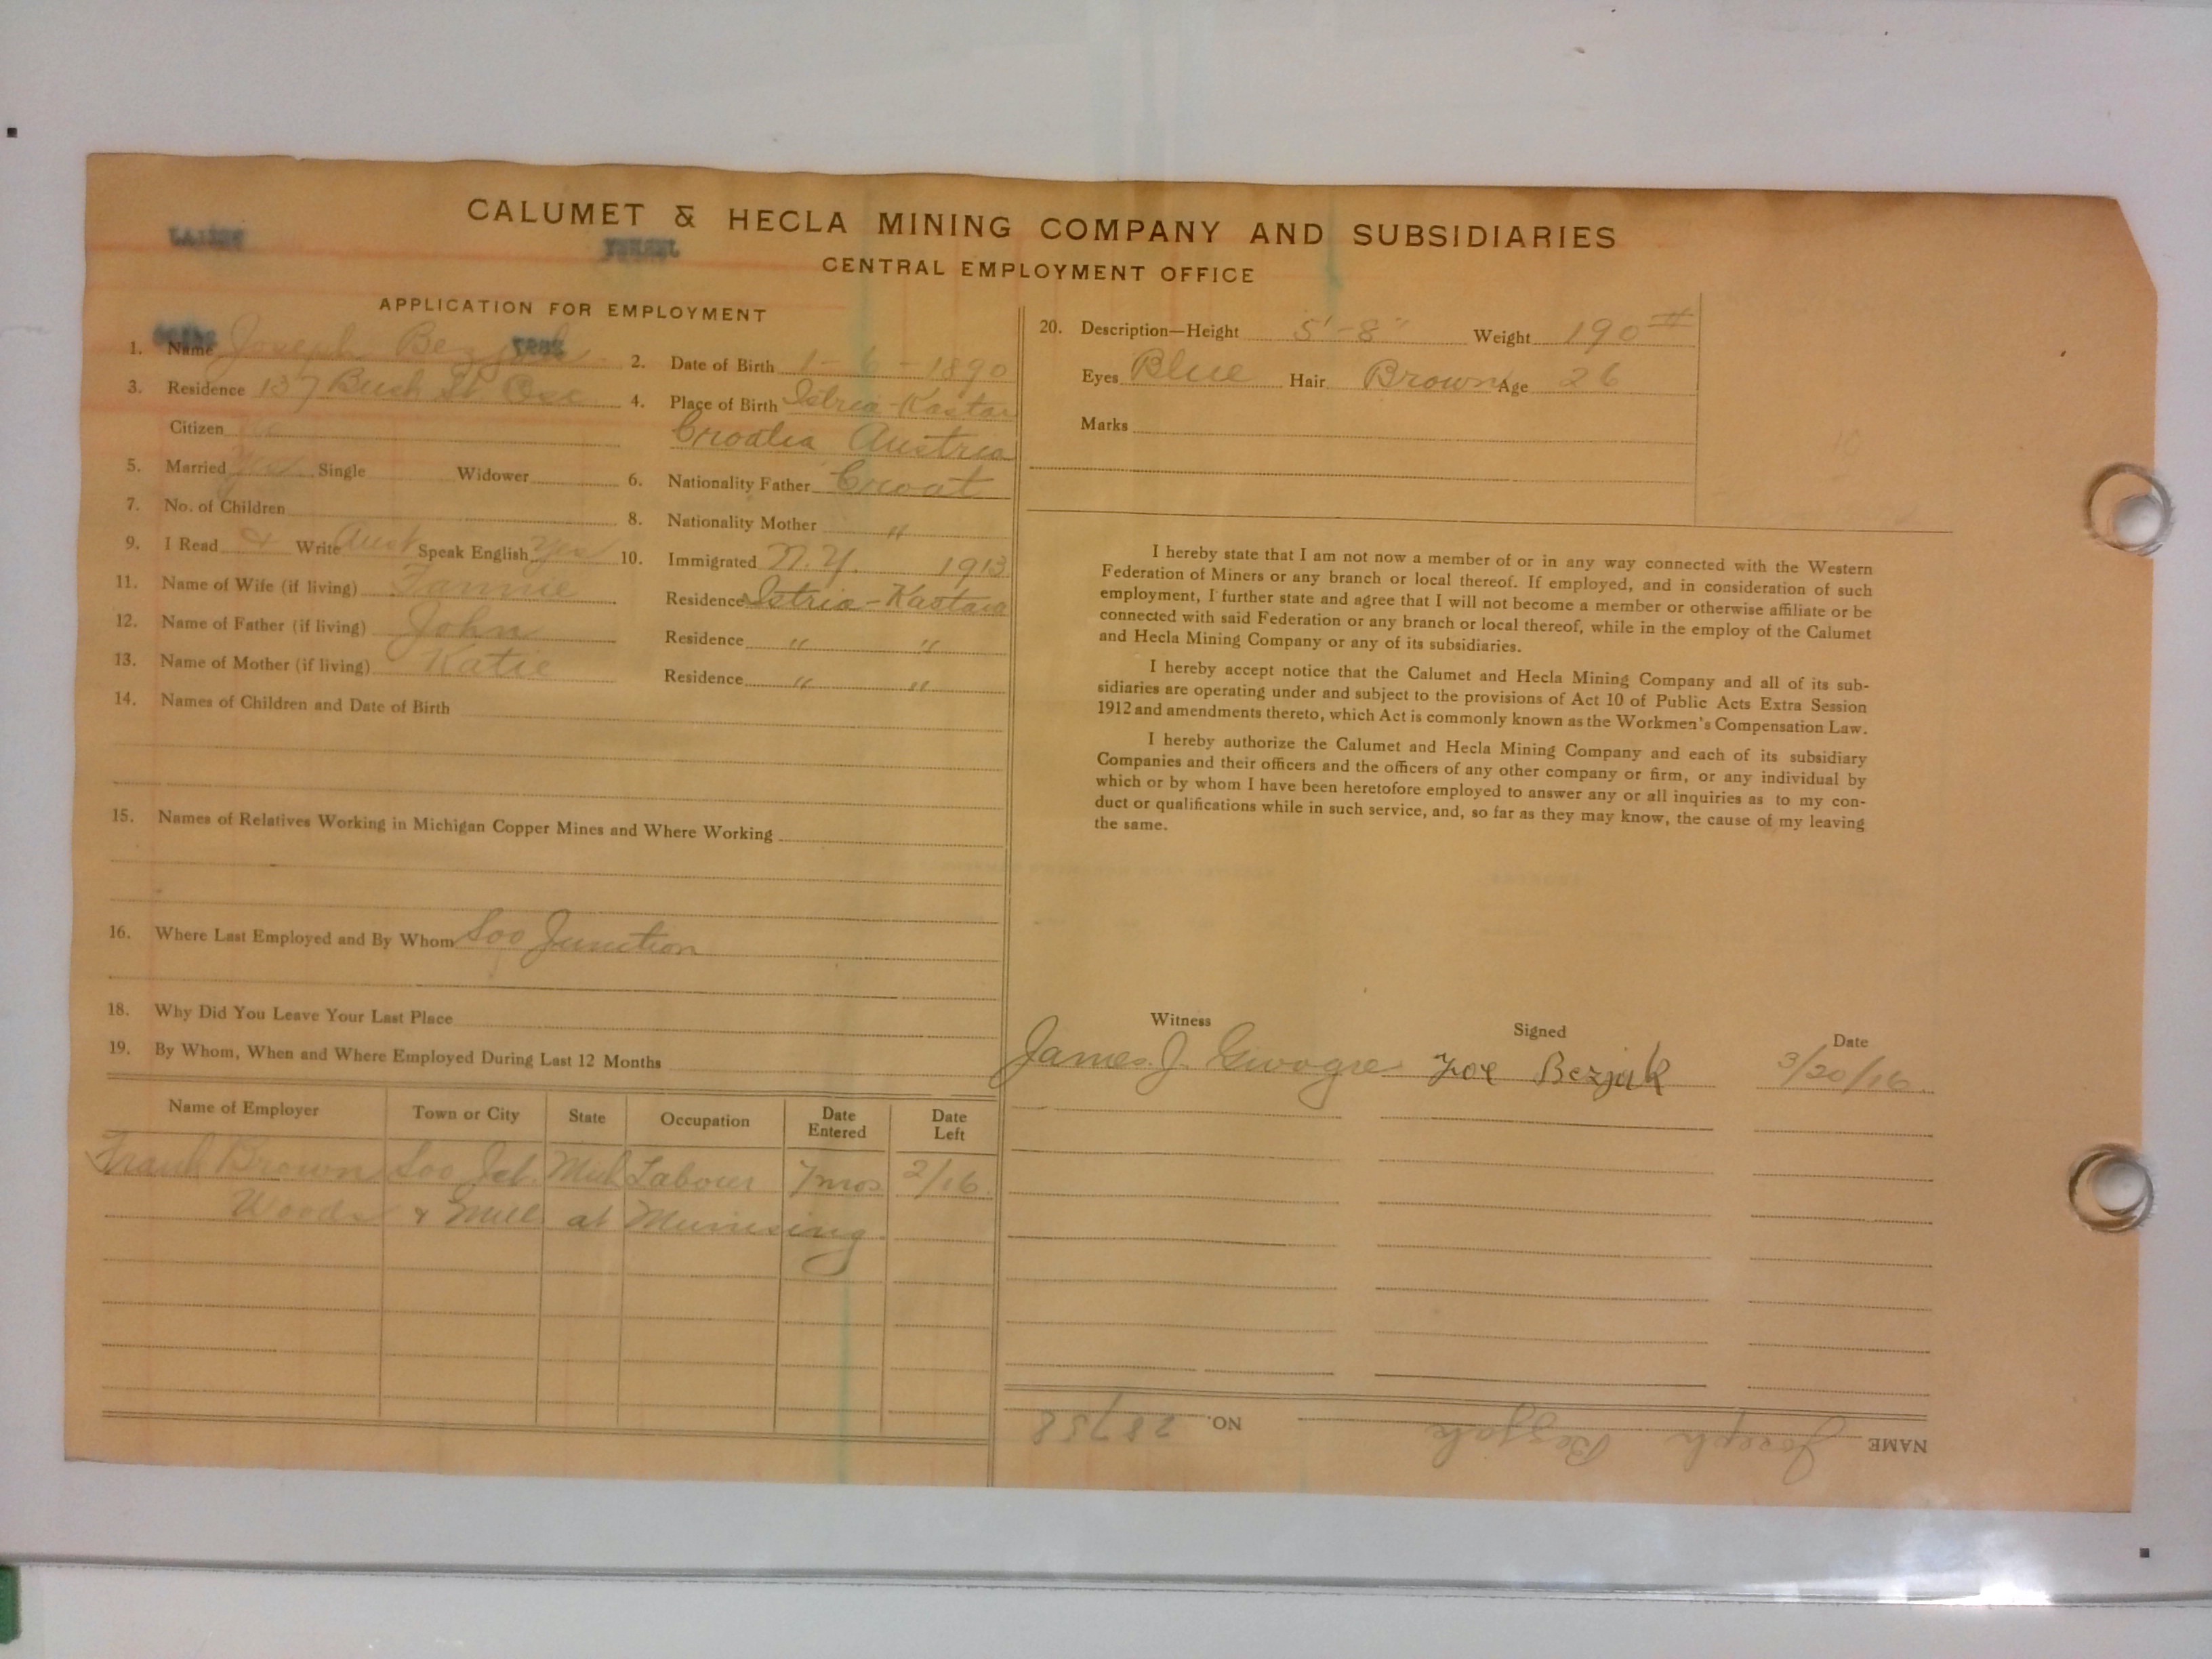 CALUMET & HECLA MINING COMPANY AND SUBSIDIARIES
CENTRAL EMPLOYMENT OFFICE
APPLICATION FOR EMPLOYMENT
1. Name Joseph Bezjak
2. Date of Birth 1-6-1890
3. Residence 137 Bush St. Osc
4. Place of Birth Istria-Kastav
Croatia Austria
Citizen
5. Married yes Single Widower
6. Nationality Father Croat
7. No. of Children
8. Nationality Mother "
9. I Read & Write Aust Speak English Yes
10. Immigrated N.Y. 1913
11. Name of Wife (if living) Fannie
Residence Istria-Kastava
12. Name of Father (if living) John
Residence " "
13. Name of Mother (if living) Katie
Residence " "
14. Names of Children and Date of Birth
15. Names of Relatives Working in Michigan Copper Mines and Where Working
16. Where Last Employed and By Whom Soo Junction
18. Why Did You Leave Your Last Place
19. By Whom, When and Where Employed During Last 12 Months
Name of Employer Town or City State Occupation Date Entered Date Left
Frank Brown Soo Jct. Mich Labour 7 mos 2/16.
Woods & Mill at Munising.
20. Description—Height 5'-8" Weight 190#
Eyes Blue Hair Brown Age 26
Marks
I hereby state that I am not now a member of or in any way connected with the Western
Federation of Miners or any branch or local thereof. If employed, and in consideration of such
employment, I further state and agree that I will not become a member or otherwise affiliate or be
connected with said Federation or any branch or local thereof, while in the employ of the Calumet
and Hecla Mining Company or any of its subsidiaries.
I hereby accept notice that the Calumet and Hecla Mining Company and all of its sub-
sidiaries are operating under and subject to the provisions of Act 10 of Public Acts Extra Session
1912 and amendments thereto, which Act is commonly known as the Workmen's Compensation Law.
I hereby authorize the Calumet and Hecla Mining Company and each of its subsidiary
Companies and their officers and the officers of any other company or firm, or any individual by
which or by whom I have been heretofore employed to answer any or all inquiries as to my con-
duct or qualifications while in such service, and, so far as they may know, the cause of my leaving
the same.
Witness Signed Date
James J. Joe Bezjak 3/20/16.
NAME Joseph Bezjak NO. 28758